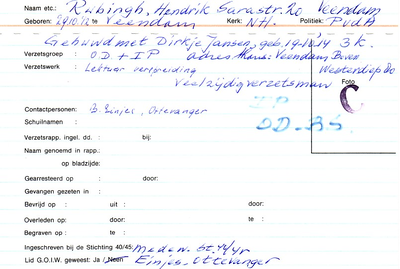 Naam etc.: Rubingh, Hendrik Sarastr. 20 Veendam
Geboren: 29.10.12 te Veendam Kerk: N.H. Politiek: PvdA
Gehuwd met Dirkje Jansen, geb. 19-10-'14 3 k.
Verzetsgroep : OD + IP adres thans: Veendam, Boven
Verzetswerk : Lectuur verspreiding Westerdiep 80
Veelzijdig verzetsman
Foto
C
Contactpersonen: B. Einjes, Ottevanger
IP
Schuilnamen :
OD-BS
Verzetsrapp. ingel. dd. : bij:
Naam genoemd in rapp.:
op bladzijde:
Gearresteerd op : door:
Gevangen gezeten in :
Bevrijd op : uit : door:
Overleden op: door: te :
Begraven op : te :
Ingeschreven bij de Stichting 40/45: Medew. St. 44/45
Lid G.O.I.W. geweest: Ja / Neen Einjes, Ottevanger